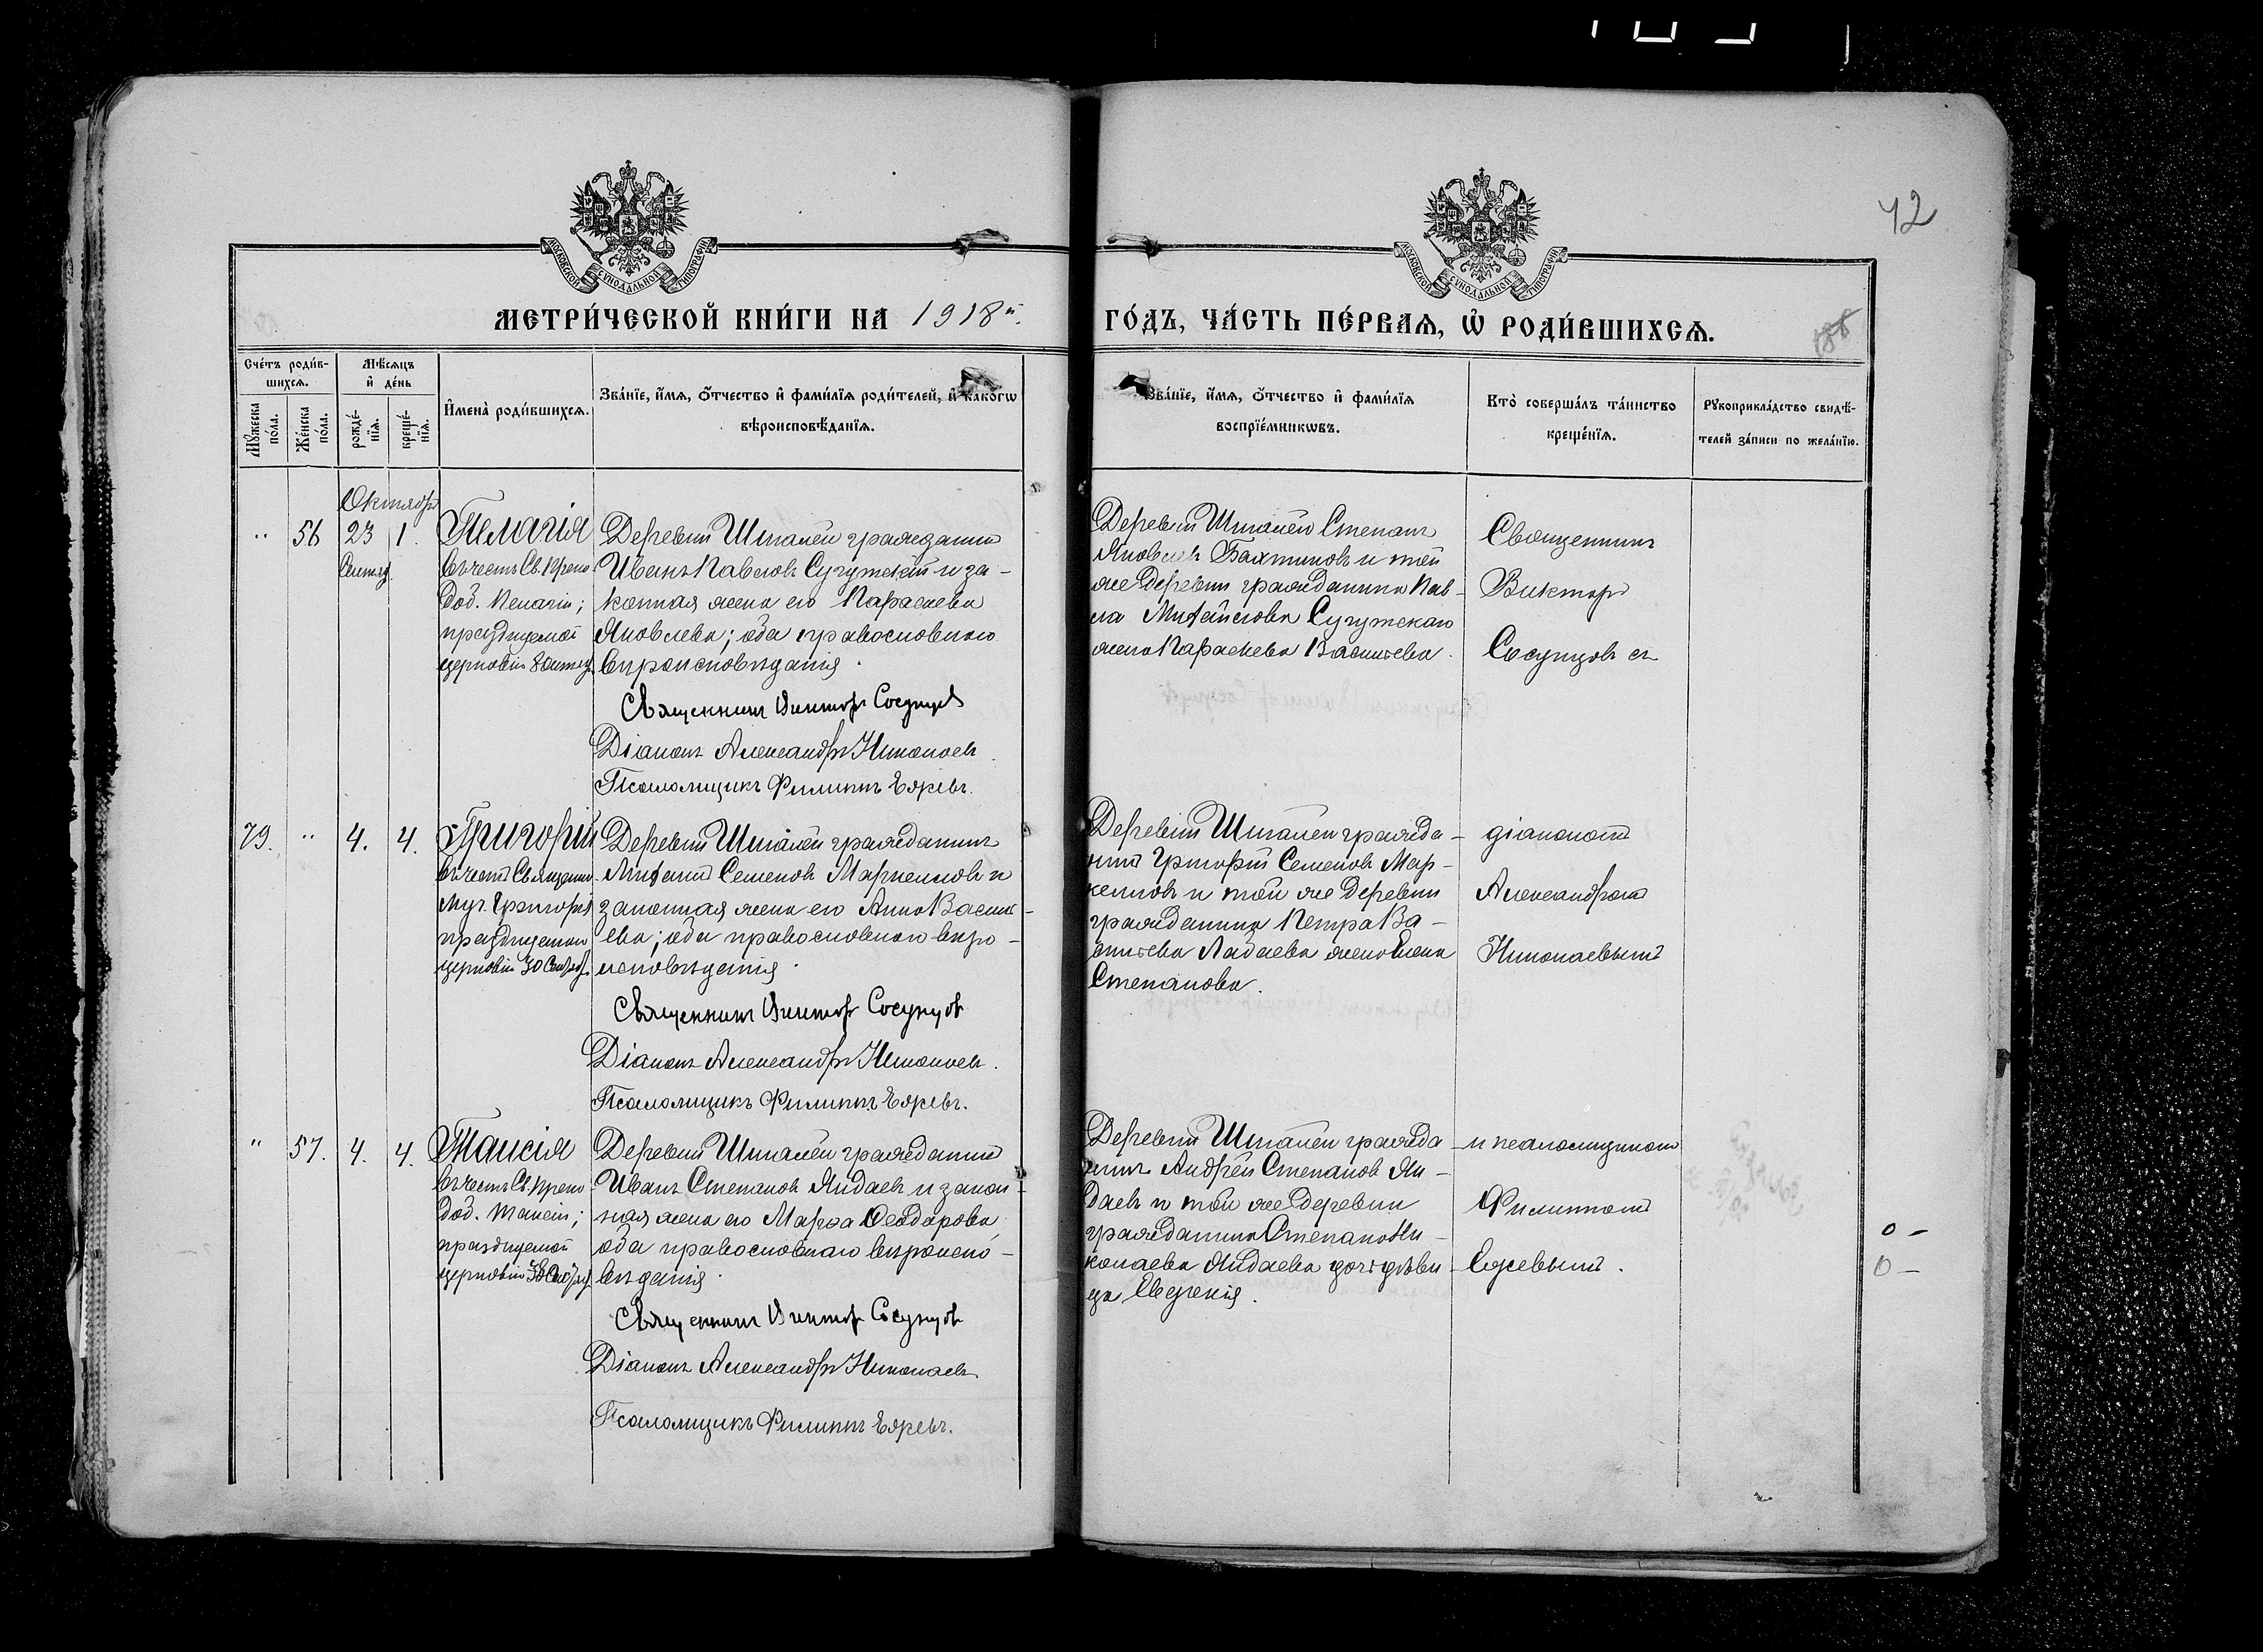 42
МОСКОВСКОЙ СѴНОДАЛЬНОЙ ТИПОГРАФІИ
МОСКОВСКОЙ СѴНОДАЛЬНОЙ ТИПОГРАФІИ
МЕТРИ́ЧЕСКОЙ КНИ́ГИ НА 1918й.
ГО́ДЪ, ЧА́СТЬ ПЕ́РВАѦ, Ѡ҆ РОДИ́ВШИХСѦ.
Сче́тъ роди́в-
шихсѧ.
Мꙋ́жеска по́ла.
Же́нска по́ла.
Мѣ́сѧцъ
и҆ де́нь
рожде́-
нїѧ.
креще́-
нїѧ.
И҆мена̀ роди́вшихсѧ.
Зва́нїе, и҆́мѧ, ѻ҆́тчество и҆ фами́лїѧ роди́телей, и҆ како́гѡ
вѣроисповѣ́данїѧ.
Зва́нїе, и҆́мѧ, ѻ҆́тчество и҆ фами́лїѧ
воспрїе́мникѡвъ.
Кто̀ соверша́лъ та́инство
креще́нїѧ.
Рꙋкоприкла́дство свидѣ́-
телей за́писи по жела́нїю.
Октябрь
" 56 23 1.
Пелагія
въ честь Св. Препо-
дод. Пелагіи;
празднуемой
церковію 8 октяб.
Деревни Шигалей гражданинъ
Иванъ Павловъ Сугутскій и за-
конная жена его Параскева
Яковлева; оба православнаго
вѣроисповѣданія.
Священникъ Викторъ Сосунцовъ
Діаконъ Александръ Николаевъ.
Псаломщикъ Филиппъ
Деревни Шигалей Степанъ
Яковлевъ Бахтиновъ и той
же деревни гражданина Пав-
ла Михайлова Сугутскаго
жена Параскева Васильева.
Священникъ
Викторъ
Сосунцовъ съ
79. " 4. 4.
Григорій
въ честь Священно-
муч. Григорія
празднуемаго
церковію 30 Сентяб.
Деревни Шигалей гражданинъ
Семеновъ Маркелловъ и
законная жена его Анна Василь-
ева; оба православнаго вѣро-
исповѣданія.
Священникъ Викторъ Сосунцовъ
Діаконъ Александръ Николаевъ.
Псаломщикъ Филиппъ
Деревни Шигалей гражда-
нинъ Григорій Семеновъ Мар-
келловъ и той же деревни
гражданина Петра Ва-
сильева жена Елена
Степанова.
діакономъ
Александромъ
Николаевымъ
" 57. 4. 4.
Таисія
въ честь Св. Препо-
дод. Таисіи;
празднуемой
церковію
Деревни Шигалей гражданинъ
Иванъ Степановъ Яндаевъ и закон-
ная жена его Марѳа Ѳеодорова,
оба православнаго вѣроиспо-
вѣданія.
Священникъ Викторъ Сосунцовъ
Діаконъ Александръ Николаевъ.
Псаломщикъ Филиппъ
Деревни Шигалей гражда-
нинъ Андрей Степановъ Ян-
даевъ и той же деревни
гражданина Степана Ни-
колаева Яндаева дочь дѣви-
ца Евгенія.
и псаломщикомъ
Филиппомъ